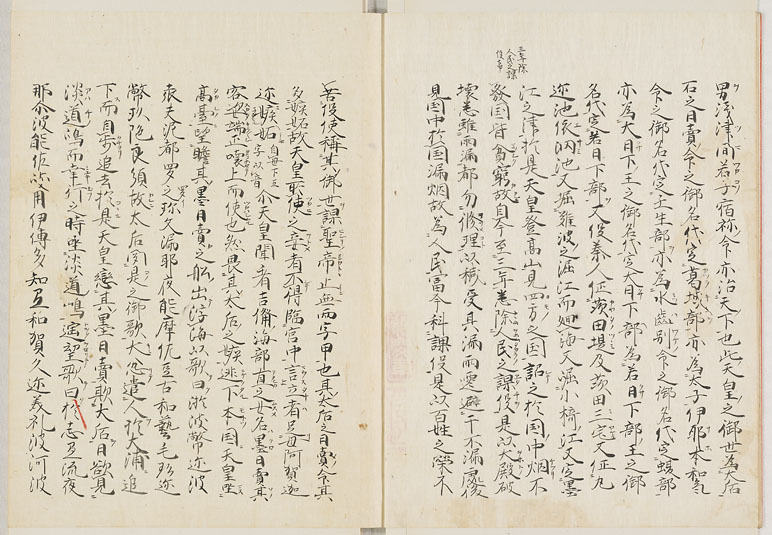 三年除
人民之課
役㕝
男浅津間若子宿祢命亦治天下也此天皇之御世為大后
石之日賣命之御名代定葛城部亦為太子伊耶本和気
命之御名代定壬生部亦為水歯別命之御名代定蝮部
亦為大日下王之御名代定大日下部為若日下部王之御
名代定若日下部又役秦人作茨田堤及茨田三宅又作丸
迩池依网池又堀難波之堀江而通海又堀小椅江又定墨
江之津於是天皇登高山見四方之国詔之於国中烟不
発国皆貧窮故自今至三年悉除人民之課役是以大殿破
壊悉雖雨漏都勿修理以椷受其漏雨遷避于不漏處後
見国中於国満烟故為人民富今科課役是以百姓之榮不
苦役使稱其御世謂聖帝也其大后之日賣命其
多嫉妬故天皇所使之妾者不得臨宮中言立者足母阿賀迦
迩嫉妬自母下五字以音尒天皇聞者吉備海部直之女名墨日賣其
容姿端正喚上而使也然畏其大后之嫉逃下本国天皇坐
高臺望瞻其墨日賣之舩出浮海以歌曰淤波幣迩波
袁夫泥都羅々玖久漏耶夜能摩佐豆古和藝毛玖迩
幣玖陀良須故太后聞是之御歌大忿遣人於大浦追
下而自歩追去於是天皇戀其墨日賣欺大后曰欲見
淡道嶋而幸行之時坐淡道嶋遥望歌曰於志弖流夜
那尒波能佐岐用伊傳多知弖和賀久迩美礼波阿波